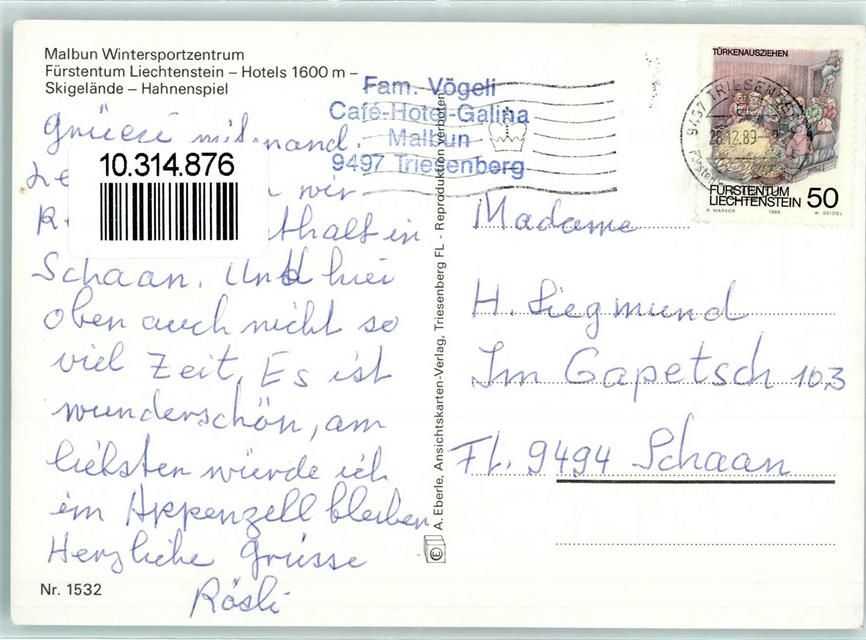 Malbun Wintersportzentrum
Fürstentum Liechtenstein – Hotels 1600 m –
Skigelände – Hahnenspiel
Fam. Vögeli
Café-Hotel-Galina
Malbun
9497 Triesenberg
Grüezi mitenand.
wir
in
Schaan. Und hier
oben auch nicht so
viel Zeit. Es ist
wunderschön, am
liebsten würde ich
im Appenzell bleiben
Herzliche Grüsse
Rösli
10.314.876
Nr. 1532
A. Eberle, Ansichtskarten-Verlag, Triesenberg FL - Reproduktion verboten
TÜRKENAUSZIEHEN
FÜRSTENTUM
LIECHTENSTEIN 50
R. MARXER 1989 W. SEIDEL
9497 TRIESENBERG
28.12.89
Madame
H. Siegmund
Im Gapetsch 103
FL. 9494 Schaan